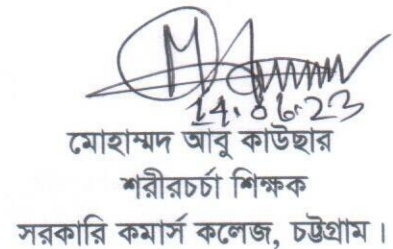 14.06.23
মোহাম্মদ আবু কাউছার
শরীরচর্চা শিক্ষক
সরকারি কমার্স কলেজ, চট্টগ্রাম।